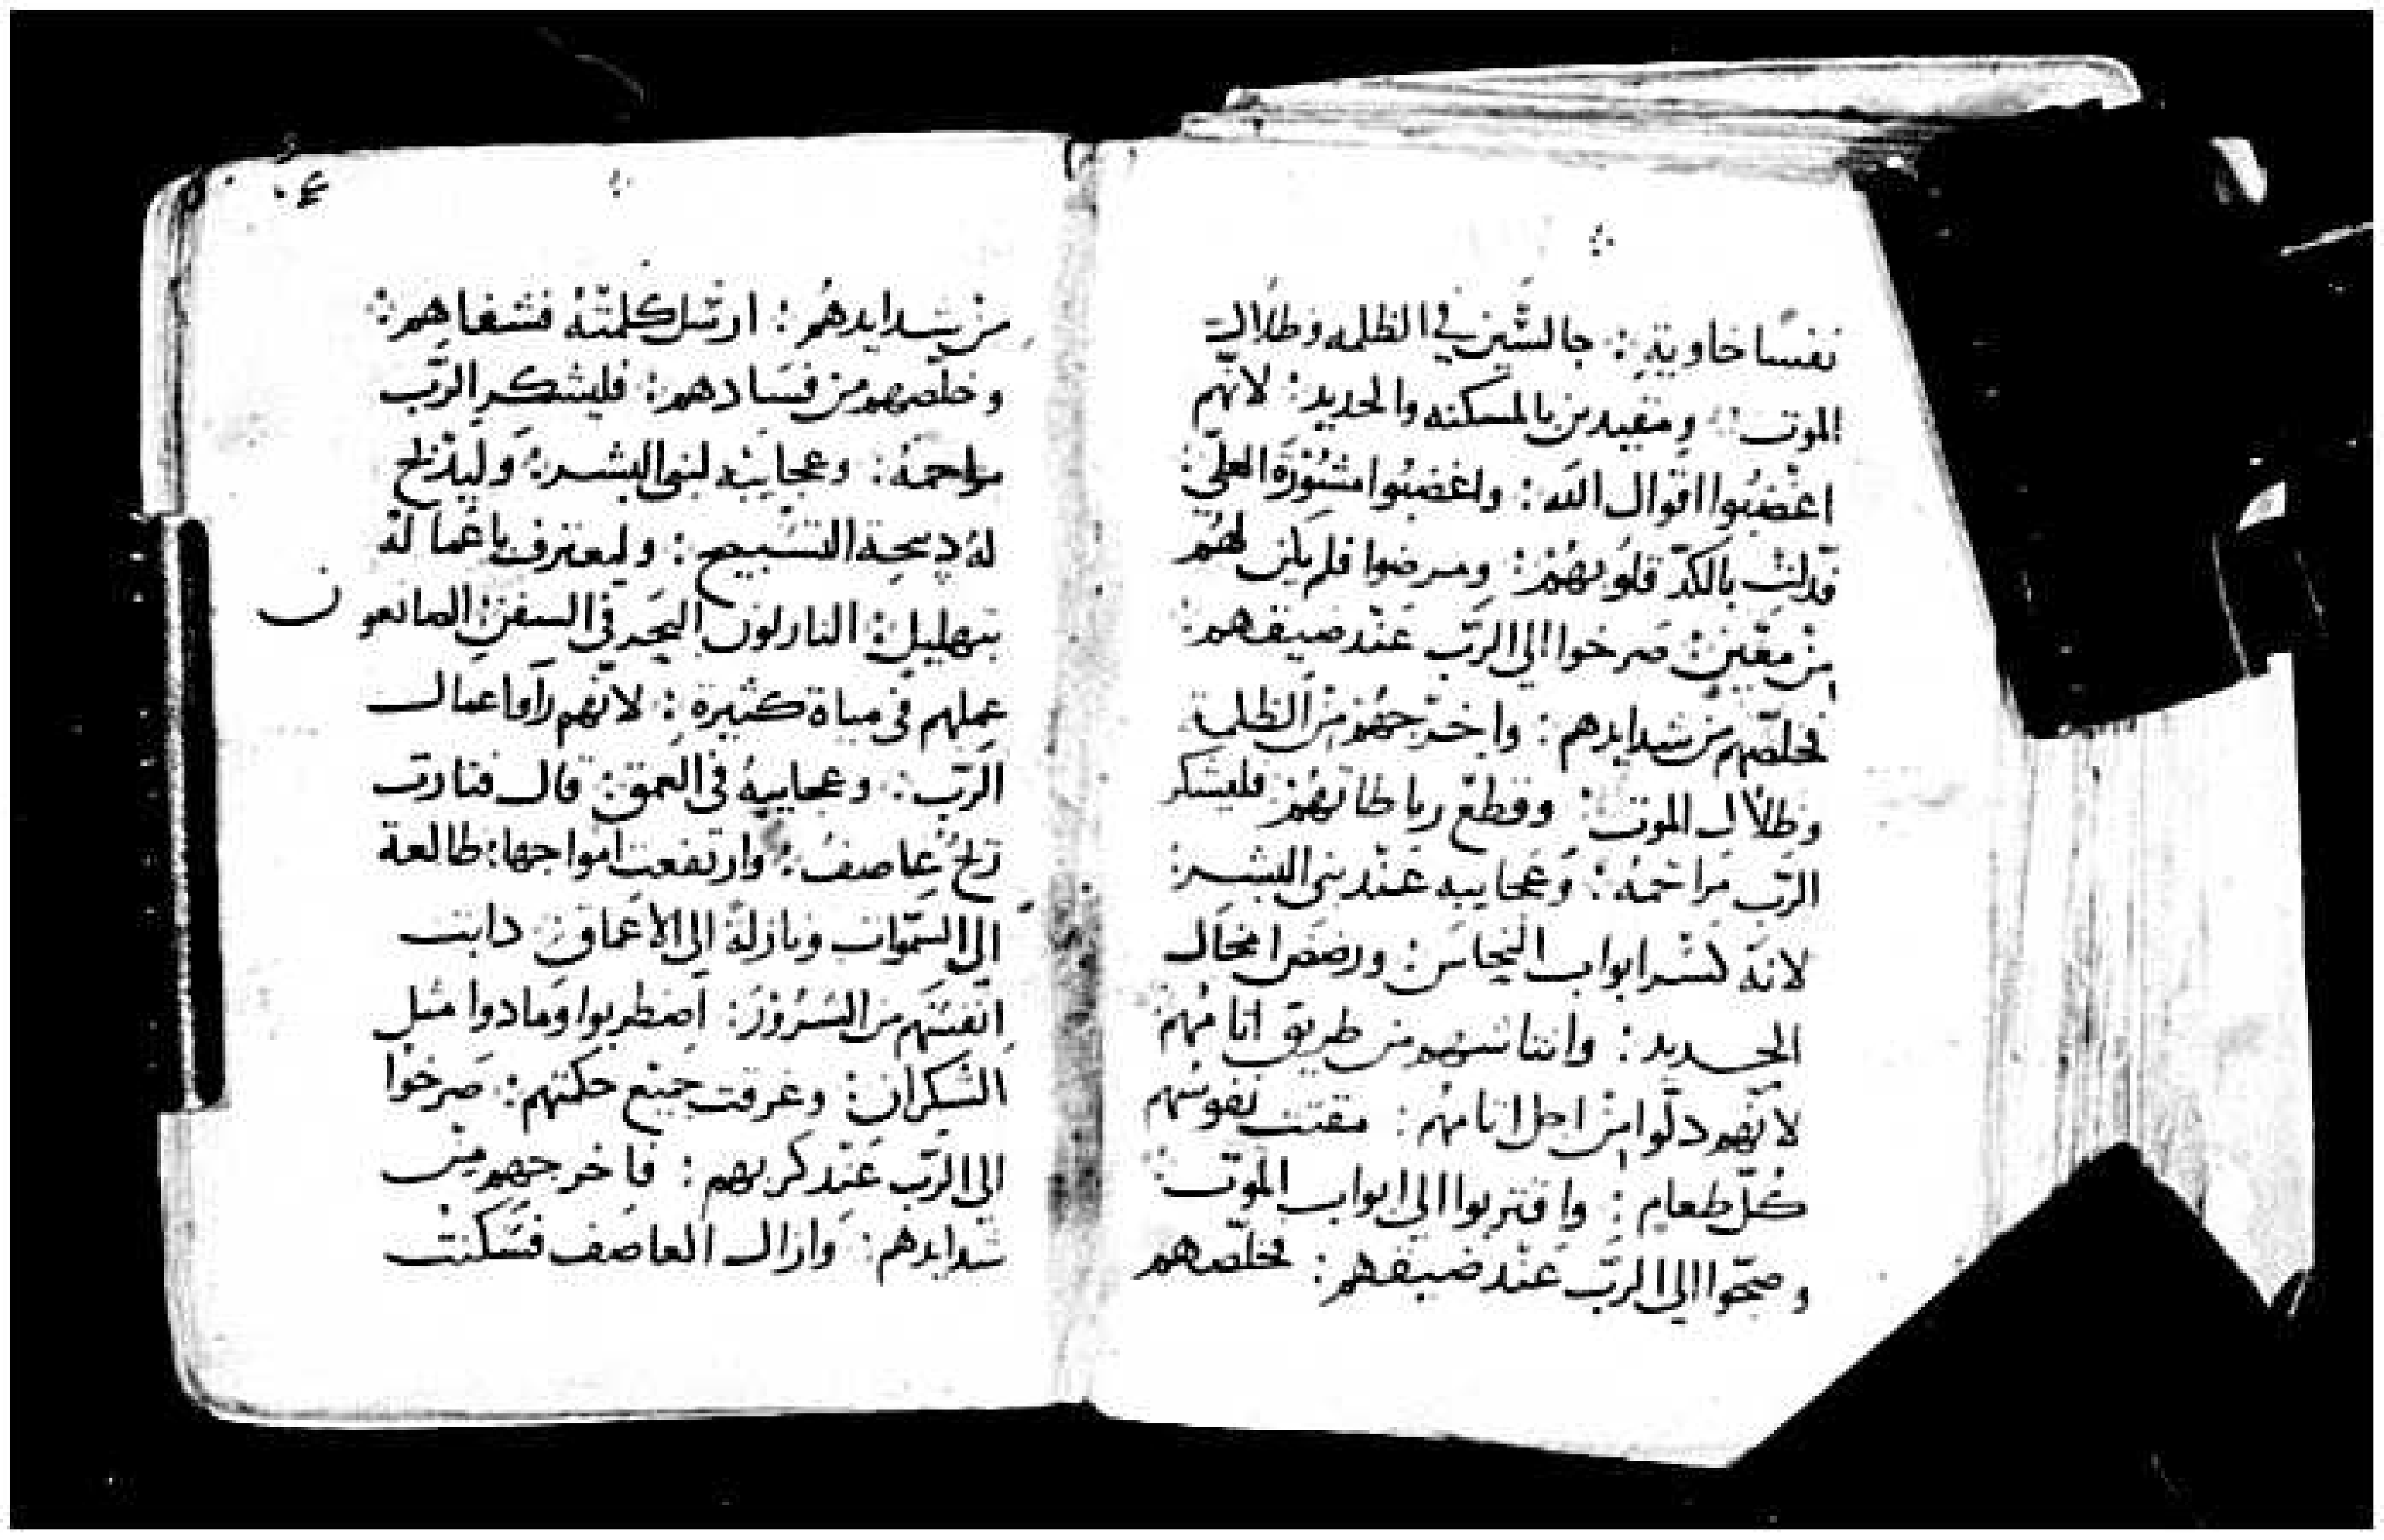 نفسًا خاوية: جالسّين في الظلمه وظلال
الموت: ومقيدين بالمسكنه والحديد: لانّهم
اغضبُوا اقوال الله: واغضبُوا مشُوْرَة العليّ:
فذلت بالكدّ قلوبهُمْ: ومرضوا فلم يكن لهُم
منْ معْين: صَرخوا الي الرَبّ عَنْد ضيقهم:
فخلصّهم من شدايدهم: واخرَجهُمْ مِنْ الظلمة
وظلال الموت: وقطعْ رباطاتهُمْ فليشكر
الرَبّ مَراحَمهُ: وَعَجايبه عَنْد بني البشر:
لانَهَ كسَّر ابواب النحاسَ: ورضض امخال
الحديد: وانتاشهم من طريق اثامُهمْ
لانّهم دلّوا منْ اجل اثامهُم: مقتت نفوسُهم
كُلّ طعام: واقتربوا الي ابواب الموت:
وصحّوا الي الربّ عَنْد ضيقهم: فخلّصهم
منْ شدايدهُم: ارسَل كلمتهُ فشفاهم:
وخلّصهم من فسَادهم: فليشكر الرّب
مراحمهُ: وعجايبه لبني البشر: وَليذبح
لهُ دبيحة التسّبيح: وليعترف باعْماله
بتهليل: النازلون البحَر في السفن: الصانعون
عملهم في مياة كثيرة: لانّهم رآوا اعمال
الرّب: وعجايبهُ في العمق: قال فثارت
ريحُ عاصفُ: وارتفعت امواجها: طالعة
الي السّموات ونازلة الي الاعَماق: دابت
انَفسَهم من السَرُوْرَ: اضطربوا ومادوا مثل
السَكران: وغرقت جميْع حكمتهم: صَرخوْا
الي الرّب عَنْد كربهم: فاخرجهم منْ
شَدايدهم: وازال العاصف فسّكنتْ